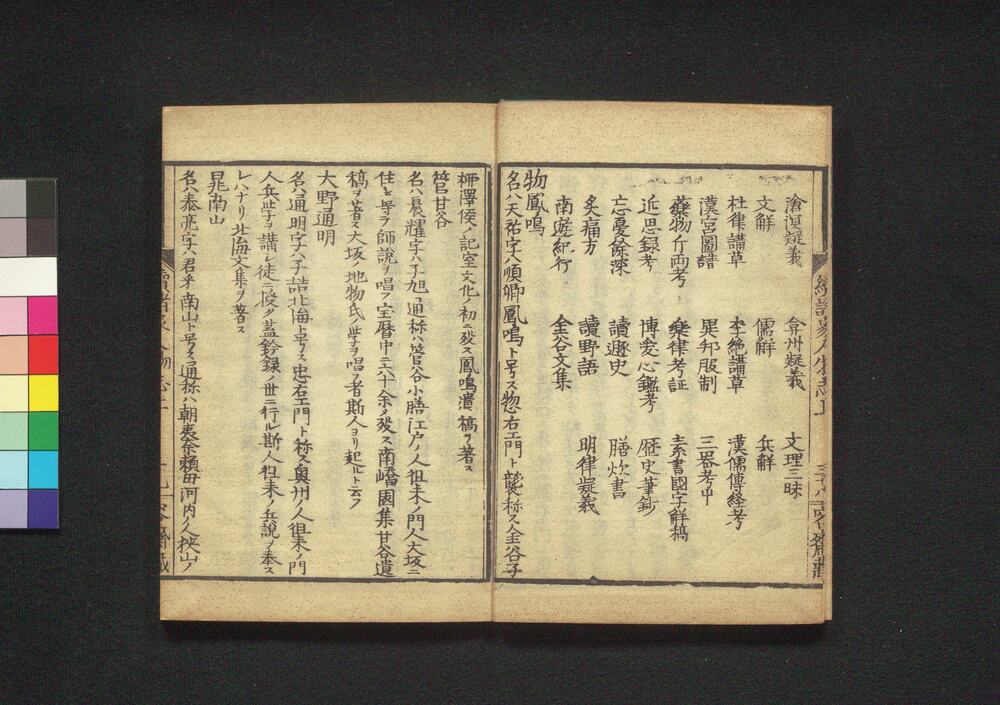 滄溟疑義　弇州疑義　文理三昧
文觧　儒觧　兵觧
杜律講草　李絶講草　漢儒傳経考
漢宮圖譜　異邦服制　三器考中
藥物斤両考　樂律考証　素書國字觧稿
近思録考　博愛心鑑考　歴史筆鈔
忘憂餘深　讀趣史　膳炊書
炙痛方　讀野語　明律疑義
南遊紀行　金谷文集
物鳳鳴
名ハ天祐字ハ順卿鳳鳴ト号ス惣右エ門ト襲称ス金谷子
栁澤侯ノ記室文化ノ初ニ殁ス鳳鳴遺稿ヲ著ス
菅甘谷
名ハ晨耀字ハ子旭通称ハ菅谷小膳江户ノ人徂来ノ門人大坂ニ
住シ専ラ師説ヲ唱フ宝暦中ニ六十余ノ殁ス南嶠園集甘谷遺
稿ヲ著ス大坂ノ地物氏ノ学ヲ唱フ者斯人ヨリ起ルト云フ
大野通明
名ハ通明字ハ子喆北海ト号ス忠右エ門ト称ス奥州ノ人徂来ノ門
人兵学ヲ講シ徒ニ授ク蓋鈐録ノ世ニ行ル斯人徂来ノ兵説ヲ奉ス
レハナリ北海文集ヲ著ス
晁南山
名ハ泰亮字ハ君采南山ト号ス通称ハ朝夷奈頼母河内ノ人挾山ノ